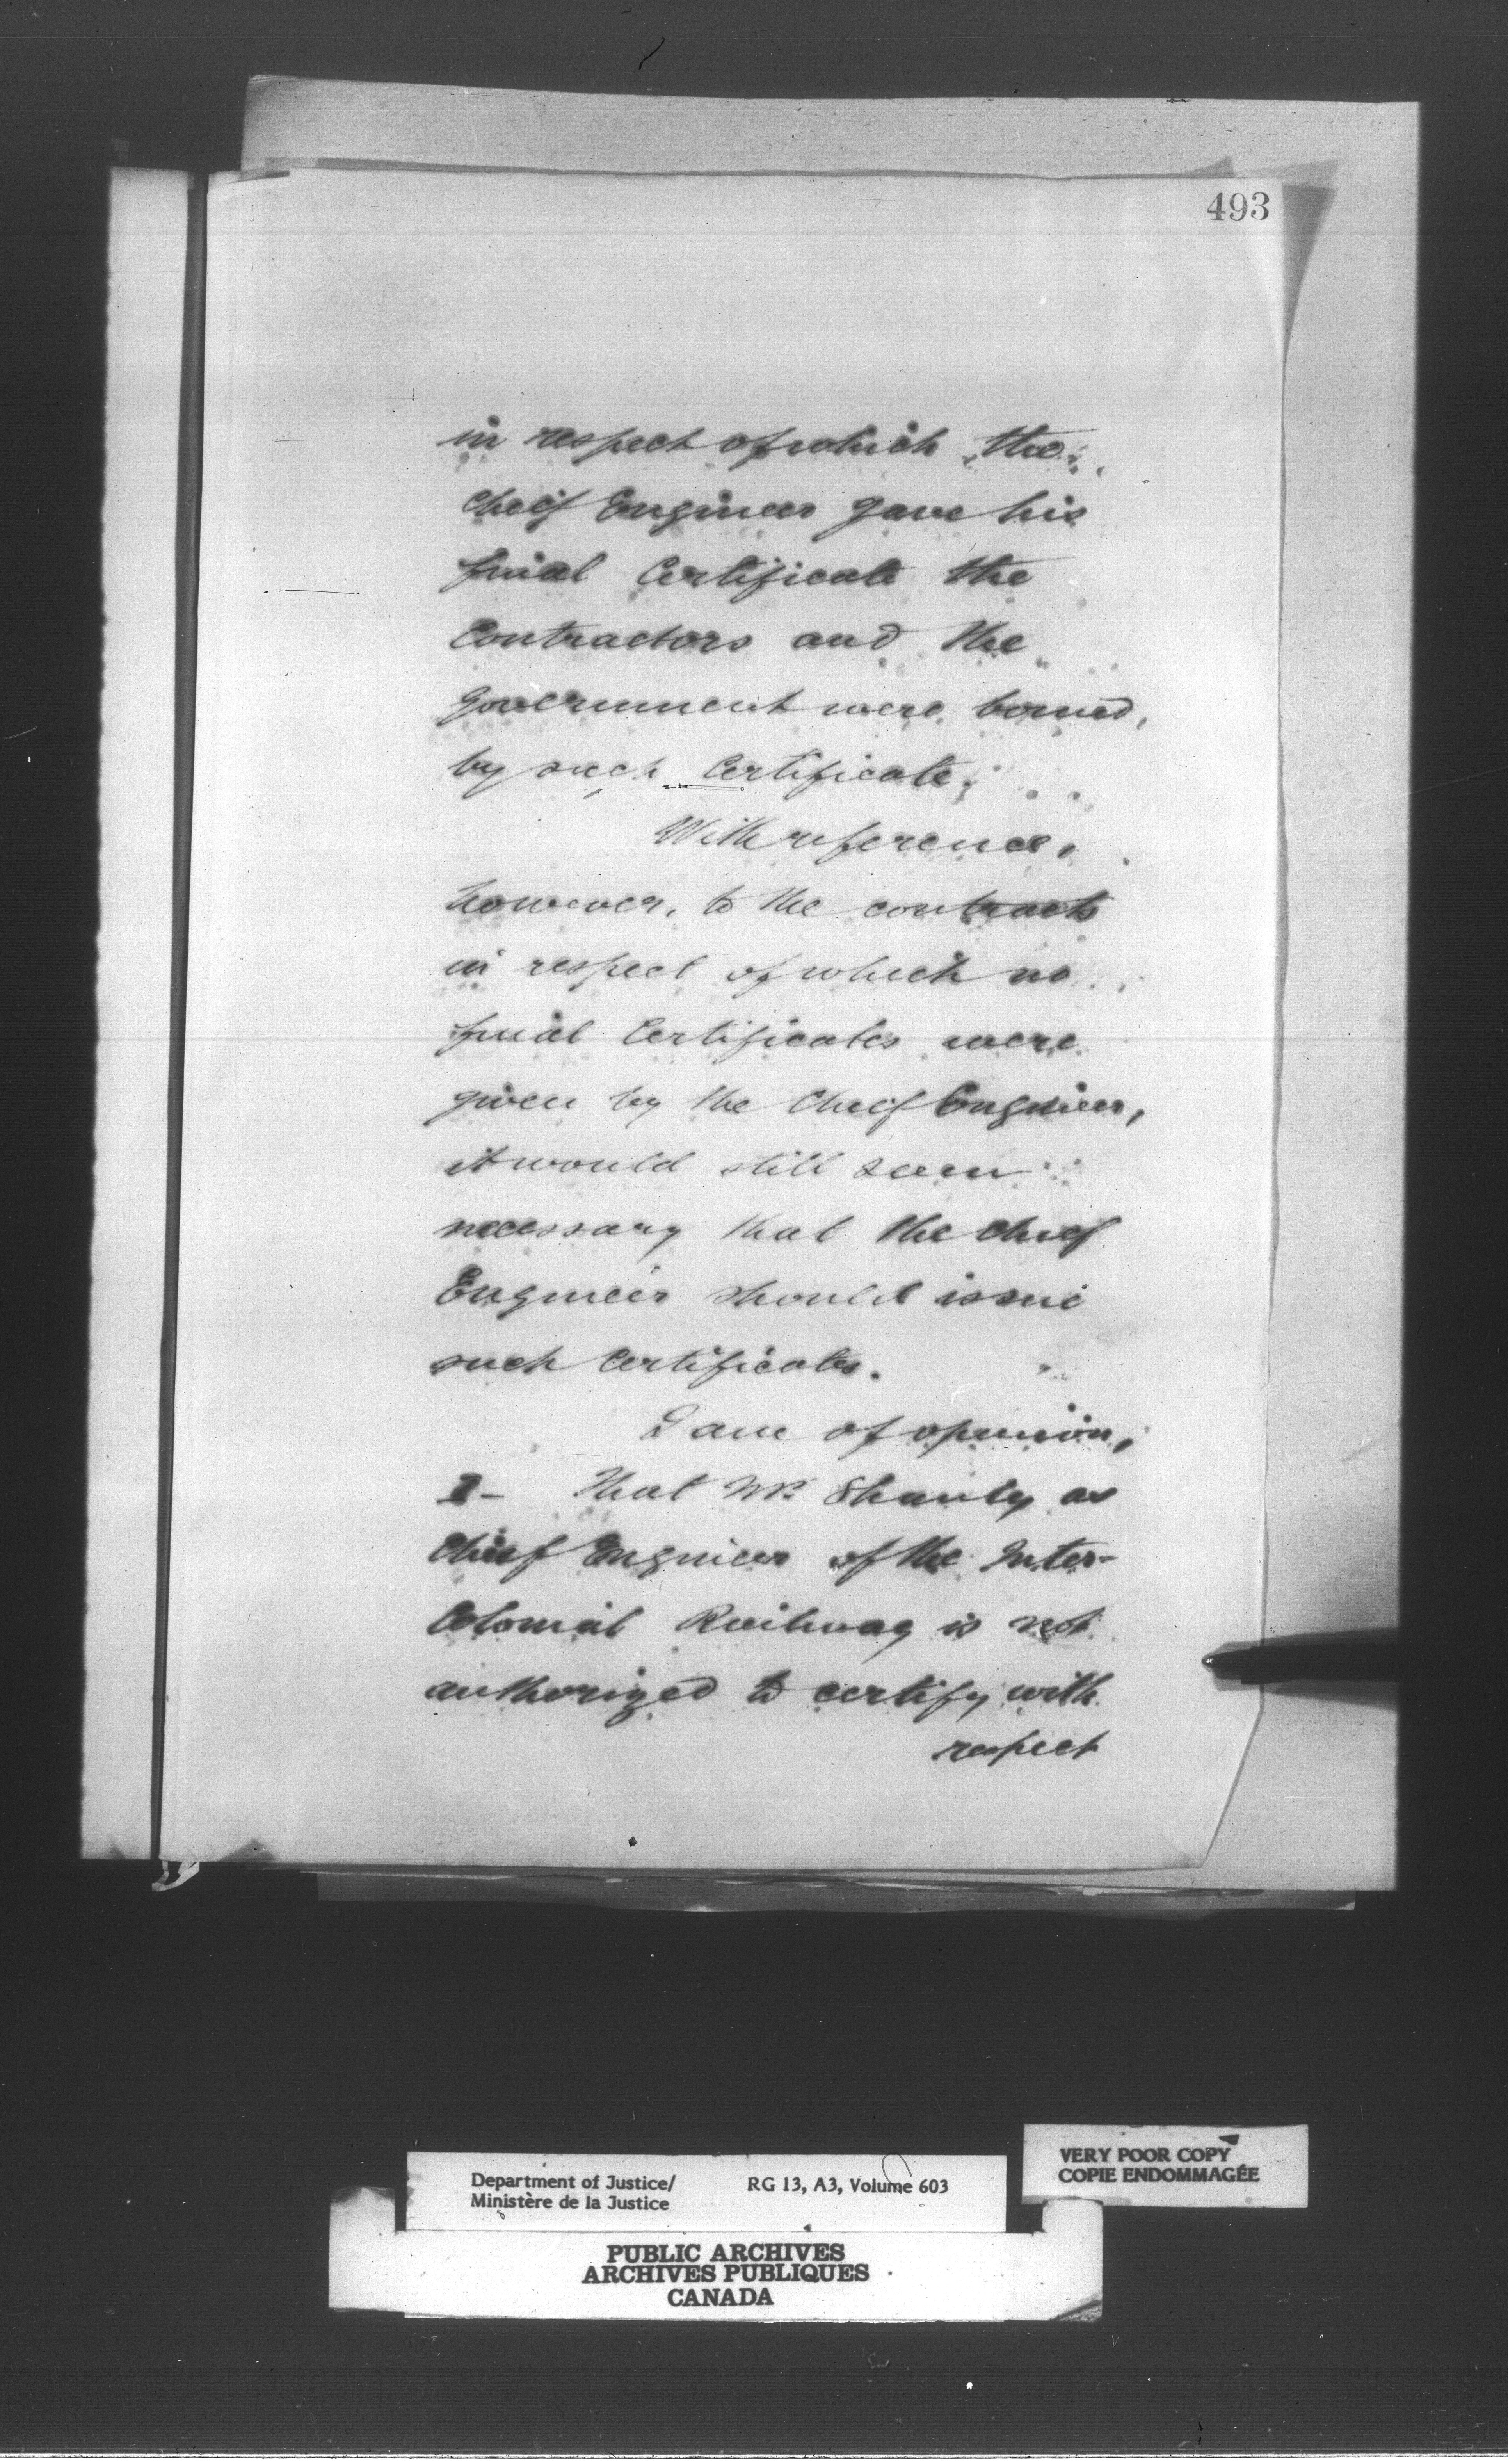 493
in respect of which the
Chief Engineer gave his
final Certificate the
Contractors and the
Government were bound,
by such Certificate.
With reference,
however, to the contracts
in respect of which no
final Certificates were
given by the Chief Engineer,
it would still seem
necessary that the Chief
Engineer should issue
such Certificates.
I am of opinion,
1- That Mr. Shanly as
Chief Engineer of the Inter-
Colonial Railway is not
authorized to certify with
respect
Department of Justice/
Ministère de la Justice
RG 13, A3, Volume 603
VERY POOR COPY
COPIE ENDOMMAGÉE
PUBLIC ARCHIVES
ARCHIVES PUBLIQUES
CANADA